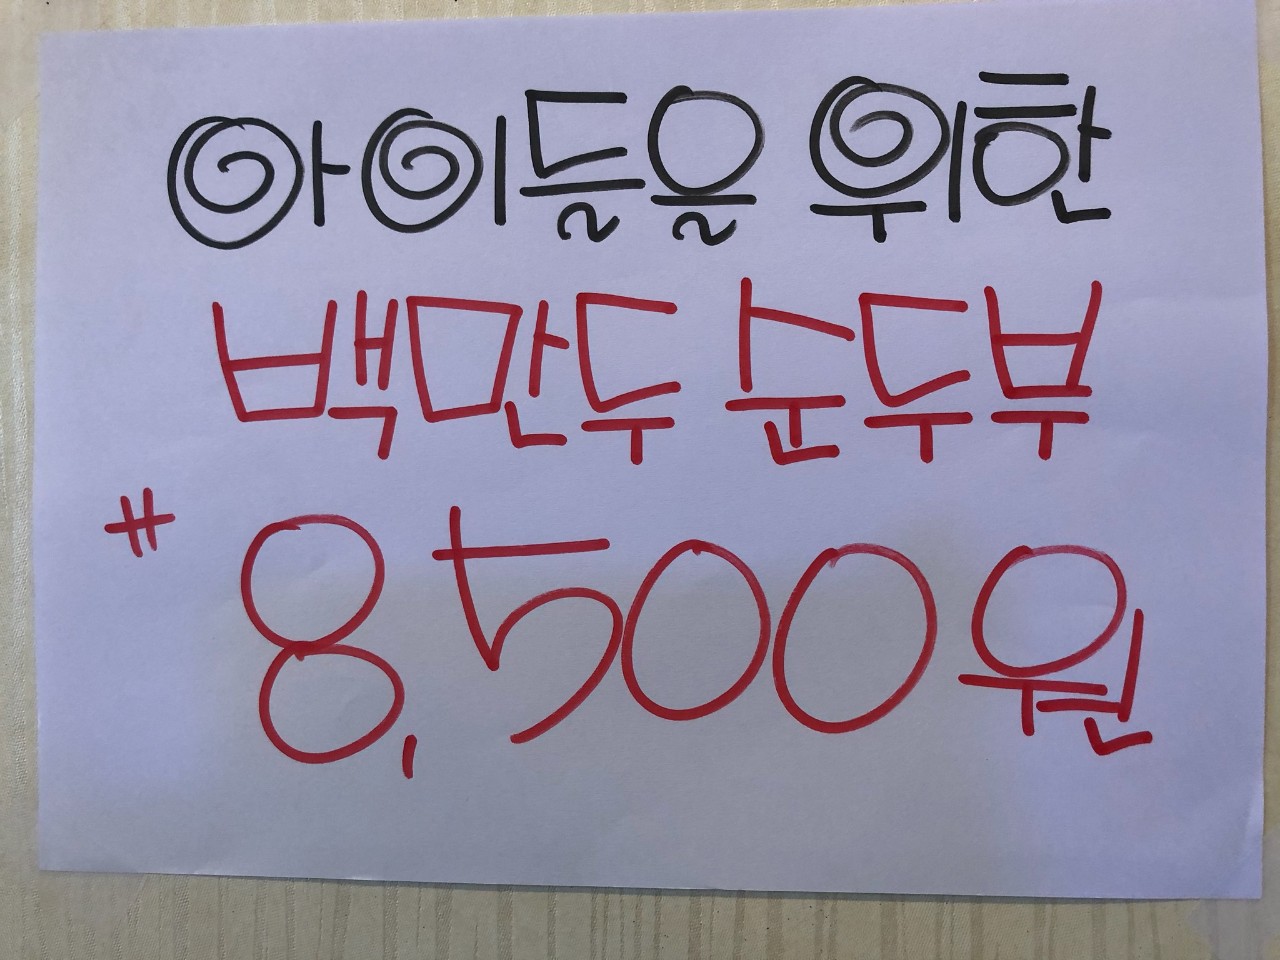 아이들을 위한
백만두 순두부
# 8,500원